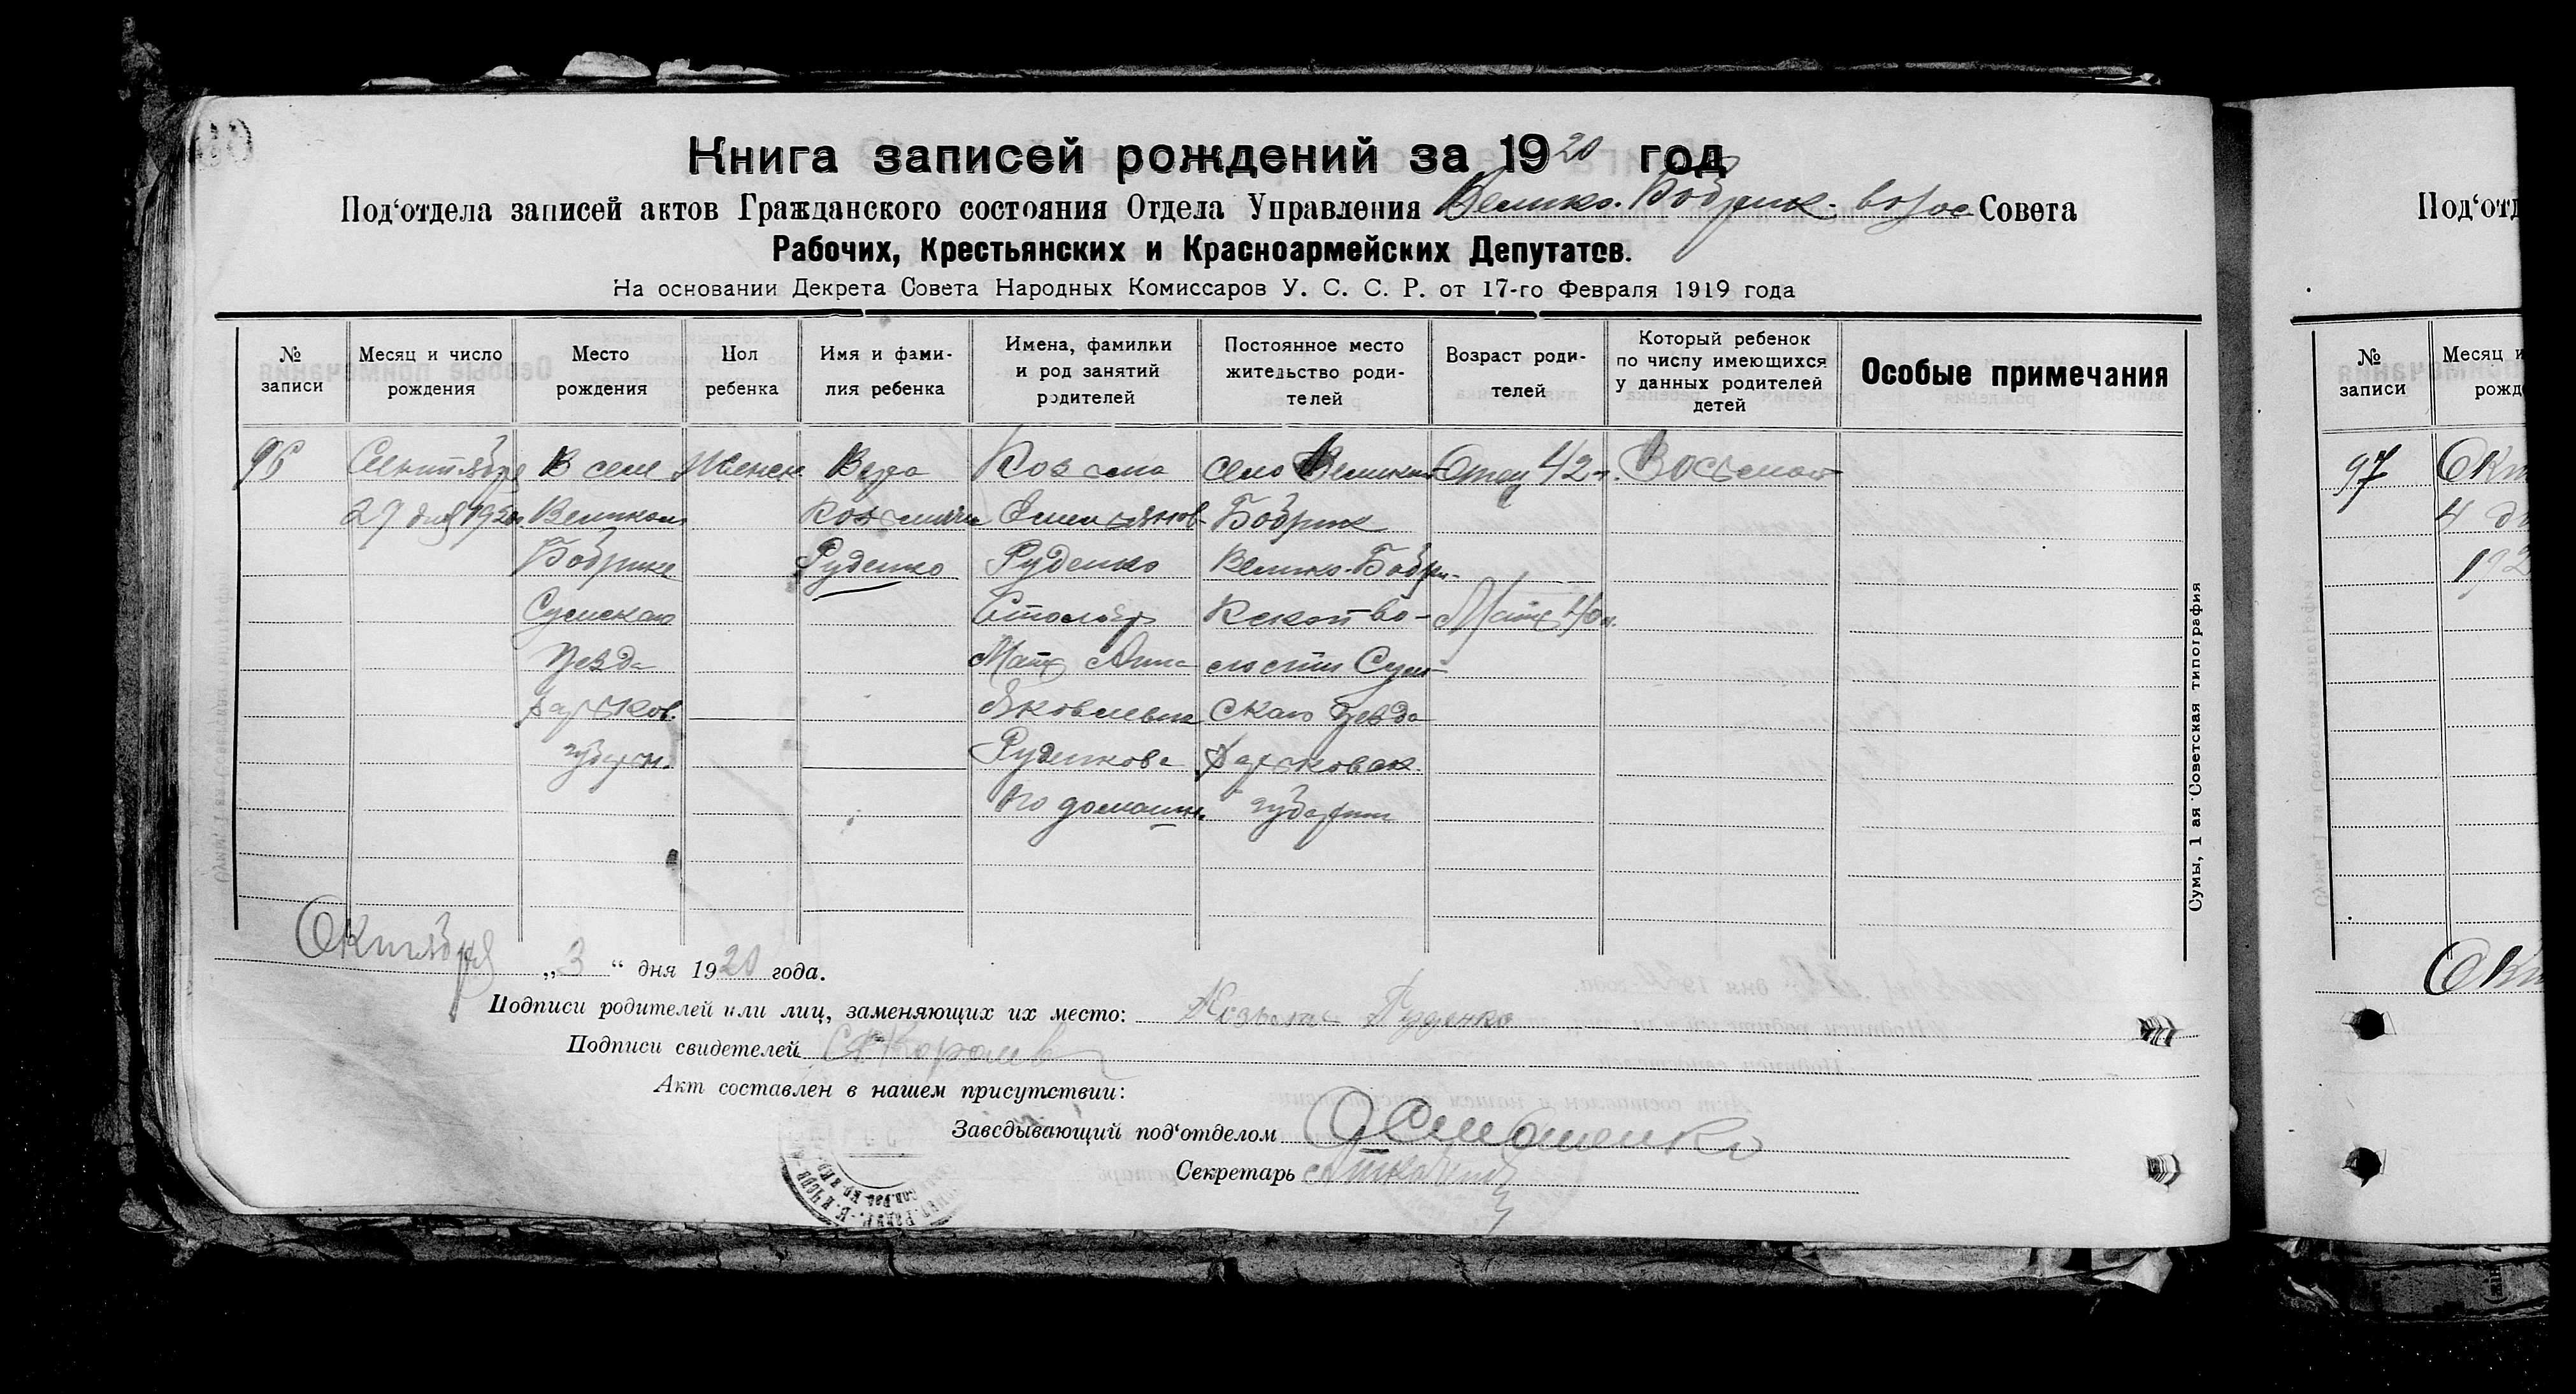 Книга записей рождений за 1920 год
Под‘отдела записей актов Гражданского состояния Отдела Управления Велико-Бобрик. волос Совета
Рабочих, Крестьянских и Красноармейских Депутатов.
На основании Декрета Совета Народных Комиссаров У. С. С. Р. от 17-го Февраля 1919 года
№ записи
Месяц и число рождения
Место рождения
Пол ребенка
Имя и фами-
лия ребенка
Имена, фамилии
и род занятий
родителей
Постоянное место
жительство роди-
телей
Возраст роди-
телей
Который ребенок
по числу имеющихся
у данных родителей
детей
Особые примечания
96
Сентября
27 дня 1920
В селе
Великом
Бобрике
Сумскаго
Уезда
Харьков.
губерн.
Женск.
Вера
Козьмина
Руденко
Козьма
Емельянов
Руденко
Столяр
Мать Анна
Яковлевна
Руденкова
по домашн.
село Великий
Бобрик
Велико-Бобри-
кской во-
лости Сум-
скаго Уезда
Харьковск.
губернии
Отец 42 л.
Мать 40 л.
Восьмой
Сумы, 1 ая Советская типография
Октября „3“ дня 1920 года.
Подписи родителей или лиц, заменяющих их место: Козьма Руденко
Подписи свидетелей Королев
Акт составлен в нашем присутствии:
Заведывающий под‘отделом
Секретарь
Под‘отд
№ записи
Месяц и
рожд
97
Окт
4 дн
192
Ок